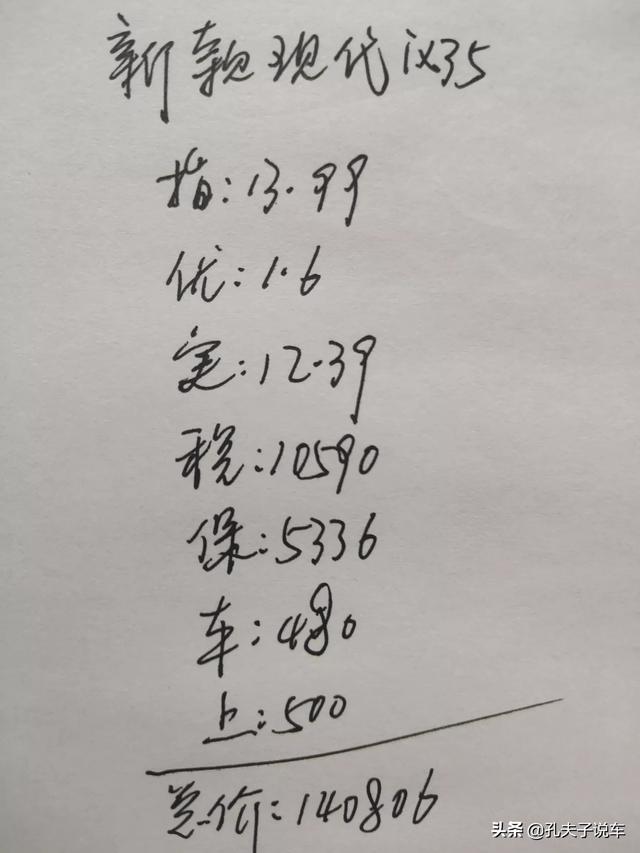 新款现代ix35
指:13.99
优:1.6
实:12.39
税:10590
保:5336
车:480
上:500
总价:140806
头条 @孔夫子说车